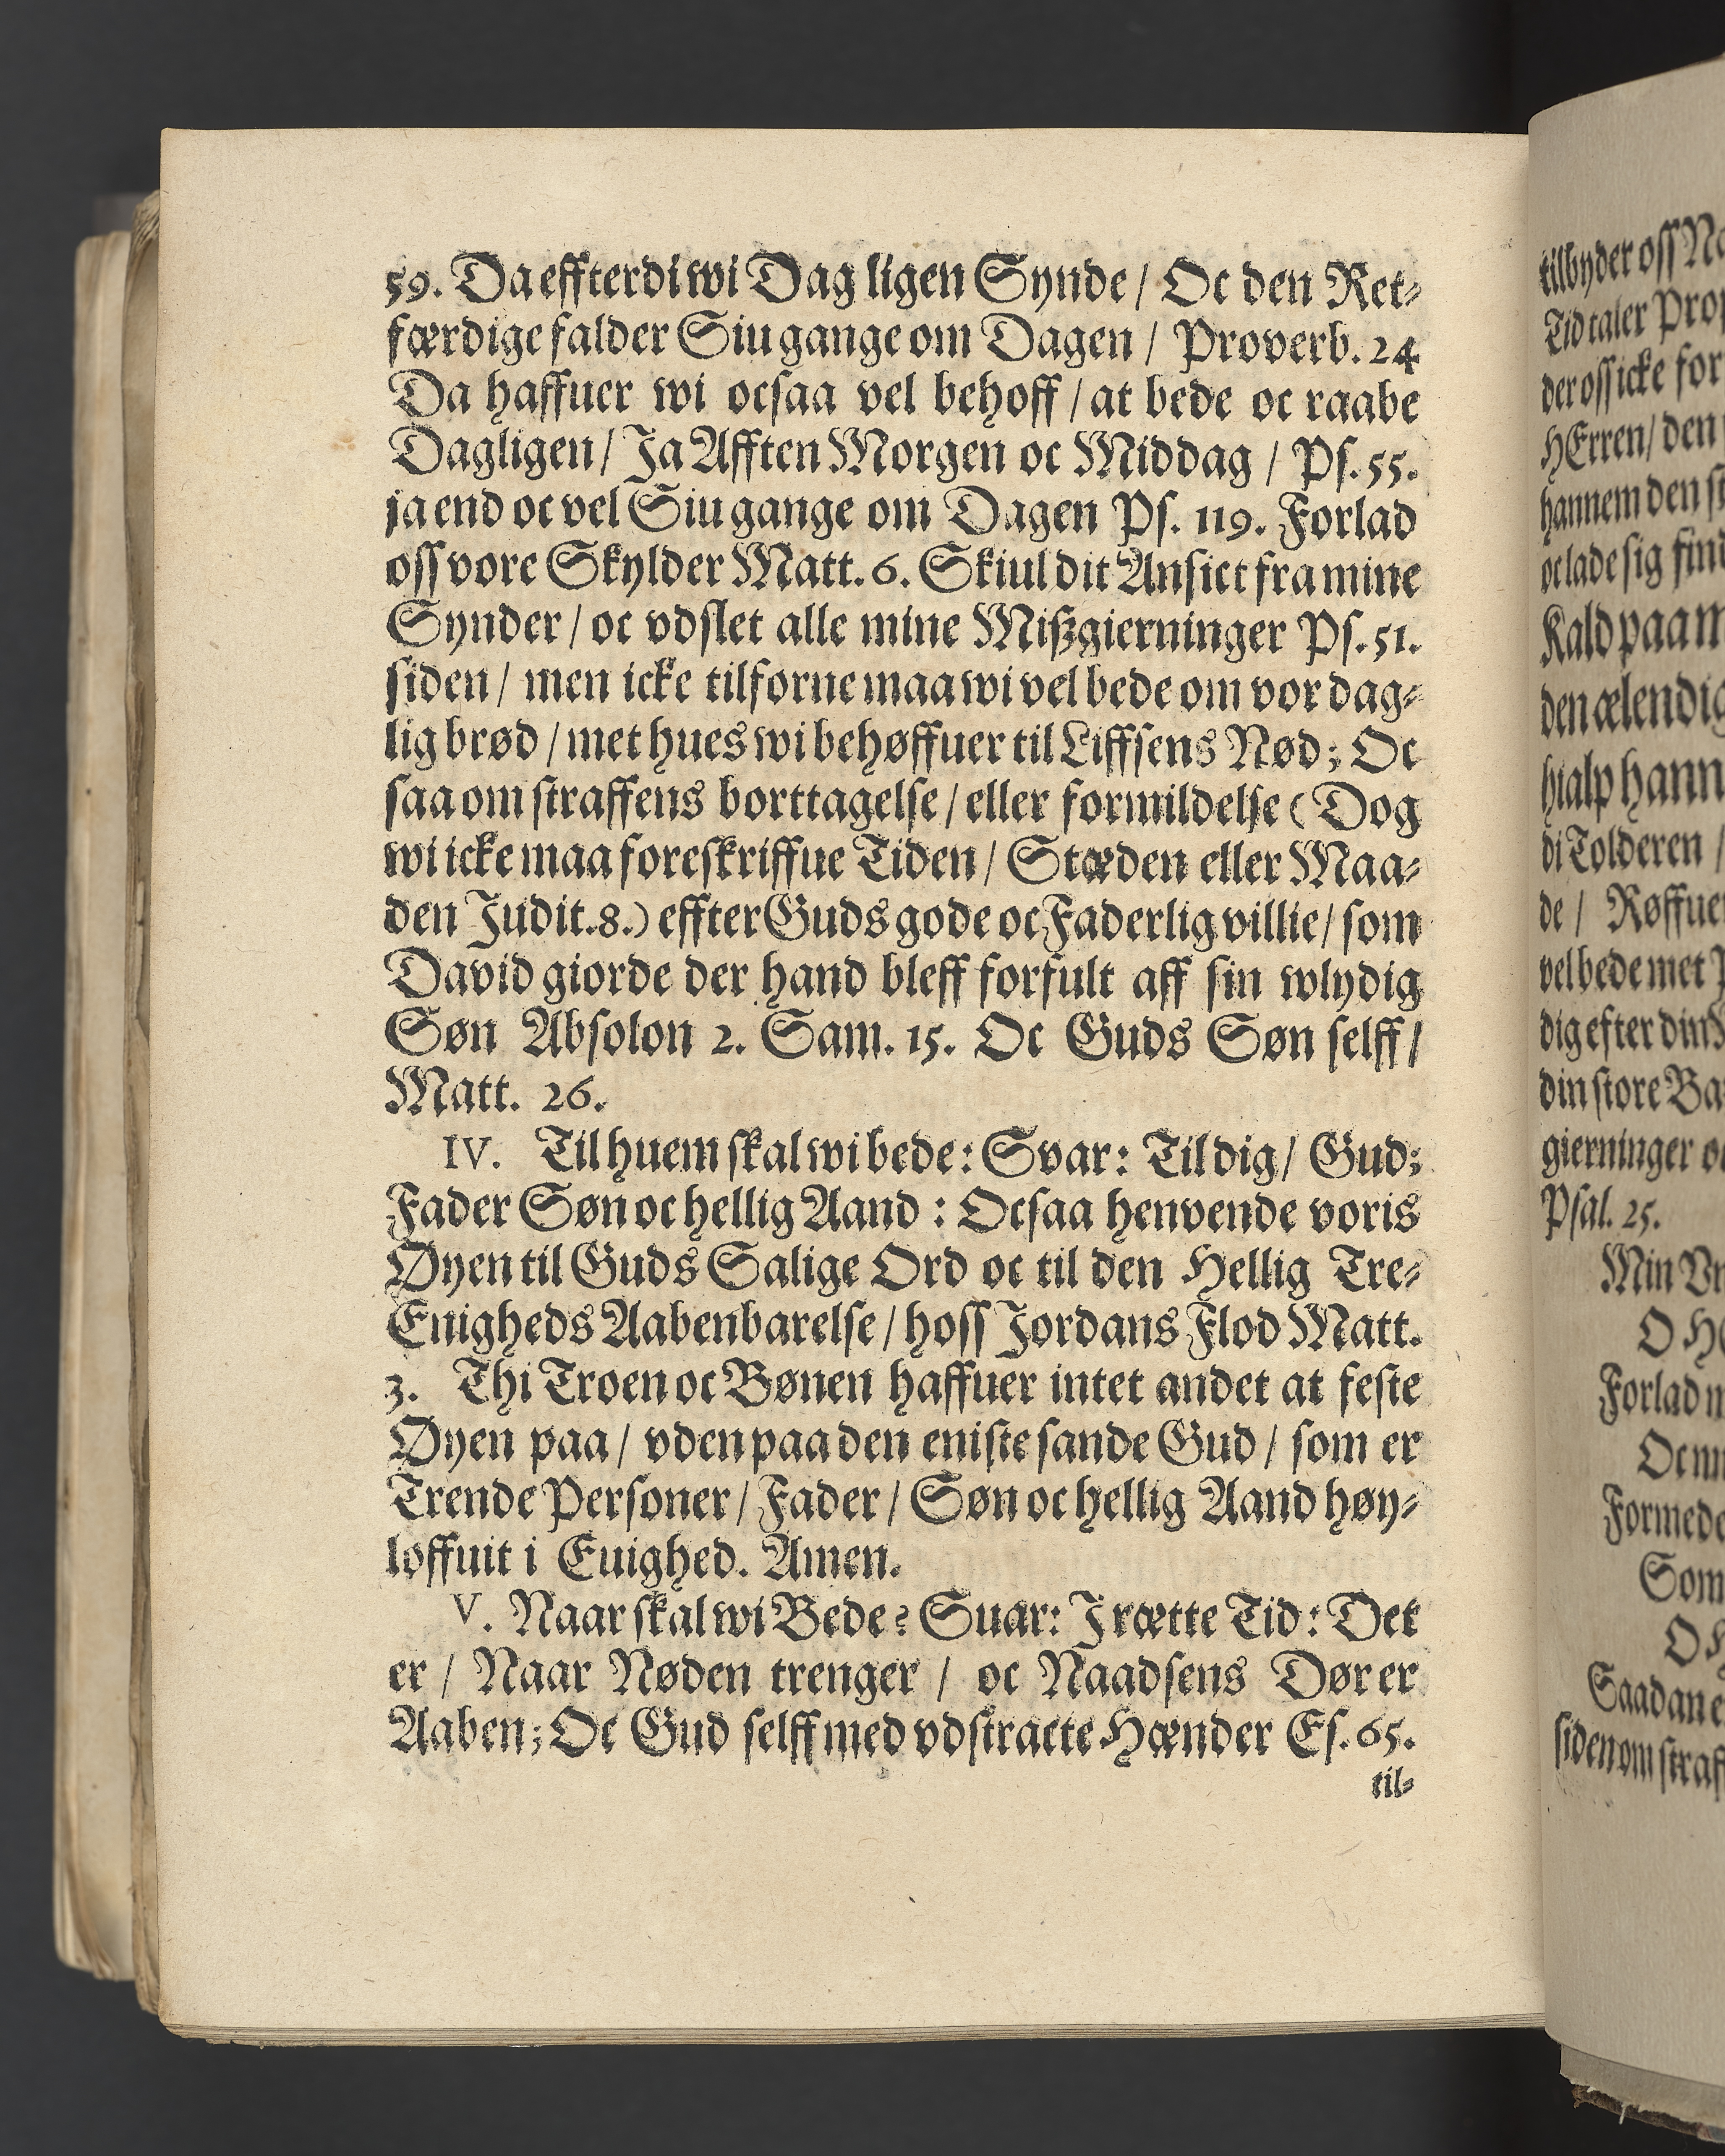 59. Da effterdi wi Dag ligen Synde / Oc den Ret⸗
færdige falder Siu gange om Dagen / Proverb. 24
Da haffuer wi ocsaa vel behoff / at bede oc raabe
Dagligen / Ja Afften Morgen oc Middag / Ps. 55.
ja end oc vel Siu gange om Dagen Ps. 119. Forlad
oss vore Skylder Matt. 6. Skiul dit Ansict fra mine
Synder / oc vdslet alle mine Mißgierninger Ps. 51.
siden / men icke tilforne maa wi vel bede om vor dag⸗
lig brød / met hues wi behøffuer til Liffsens Nød; Oc
saa om straffens borttagelse / eller formildelse (Dog
wi icke maa foreskriffue Tiden / Stæden eller Maa⸗
den Judit. 8.) effter Guds gode oc Faderlig villie / som
David giorde der hand bleff forfult aff sin wlydig
Søn Absolon 2. Sam. 15. Oc Guds Søn selff /
Matt. 26.
IV. Til huem skal wi bede: Svar: Til dig / Gud;
Fader Søn oc hellig Aand : Ocsaa henvende voris
Øyen til Guds Salige Ord oc til den Hellig Tre⸗
Enigheds Aabenbarelse / hoss Jordans Flod Matt.
3. Thi Troen oc Bønen haffuer intet andet at feste
Øyen paa / vden paa den eniste sande Gud / som er
Trende Personer / Fader / Søn oc hellig Aand høy⸗
loffuit i Euighed. Amen.
V. Naar skal wi Bede? Suar: J rætte Tid: Det
er / Naar Nøden trenger / oc Naadsens Dør er
Aaben; Oc Gud selff med vdstracte Hænder Es. 65.
til⸗
tilbyder oss
Tid taler
der oss icke for
HErren / den
hannem den
oc lade sig
Kald paa
den ælendig
hialp
di Tolderen /
de /
vel bede met
dig efter din
din store
gierninger
Psal. 25.
Min
O
Forlad
Oc
Som
O
Saadan
siden om